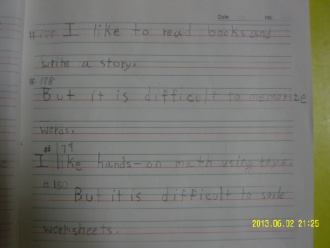 Date No.
I like to read books and
write a story.
#178
But it is difficult to memorize
words.
#179
I like hands-on math using
But it is difficult to solve
worksheets.
2013.06.02 21:25